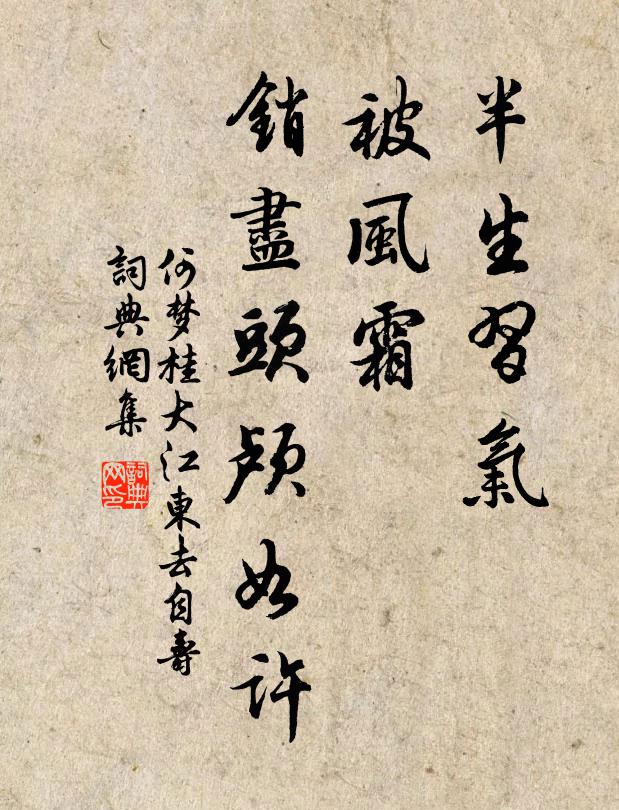 半生習氣
被風霜
銷盡頭顱如許
何梦桂大江東去自壽
詞典網集
詞典网印